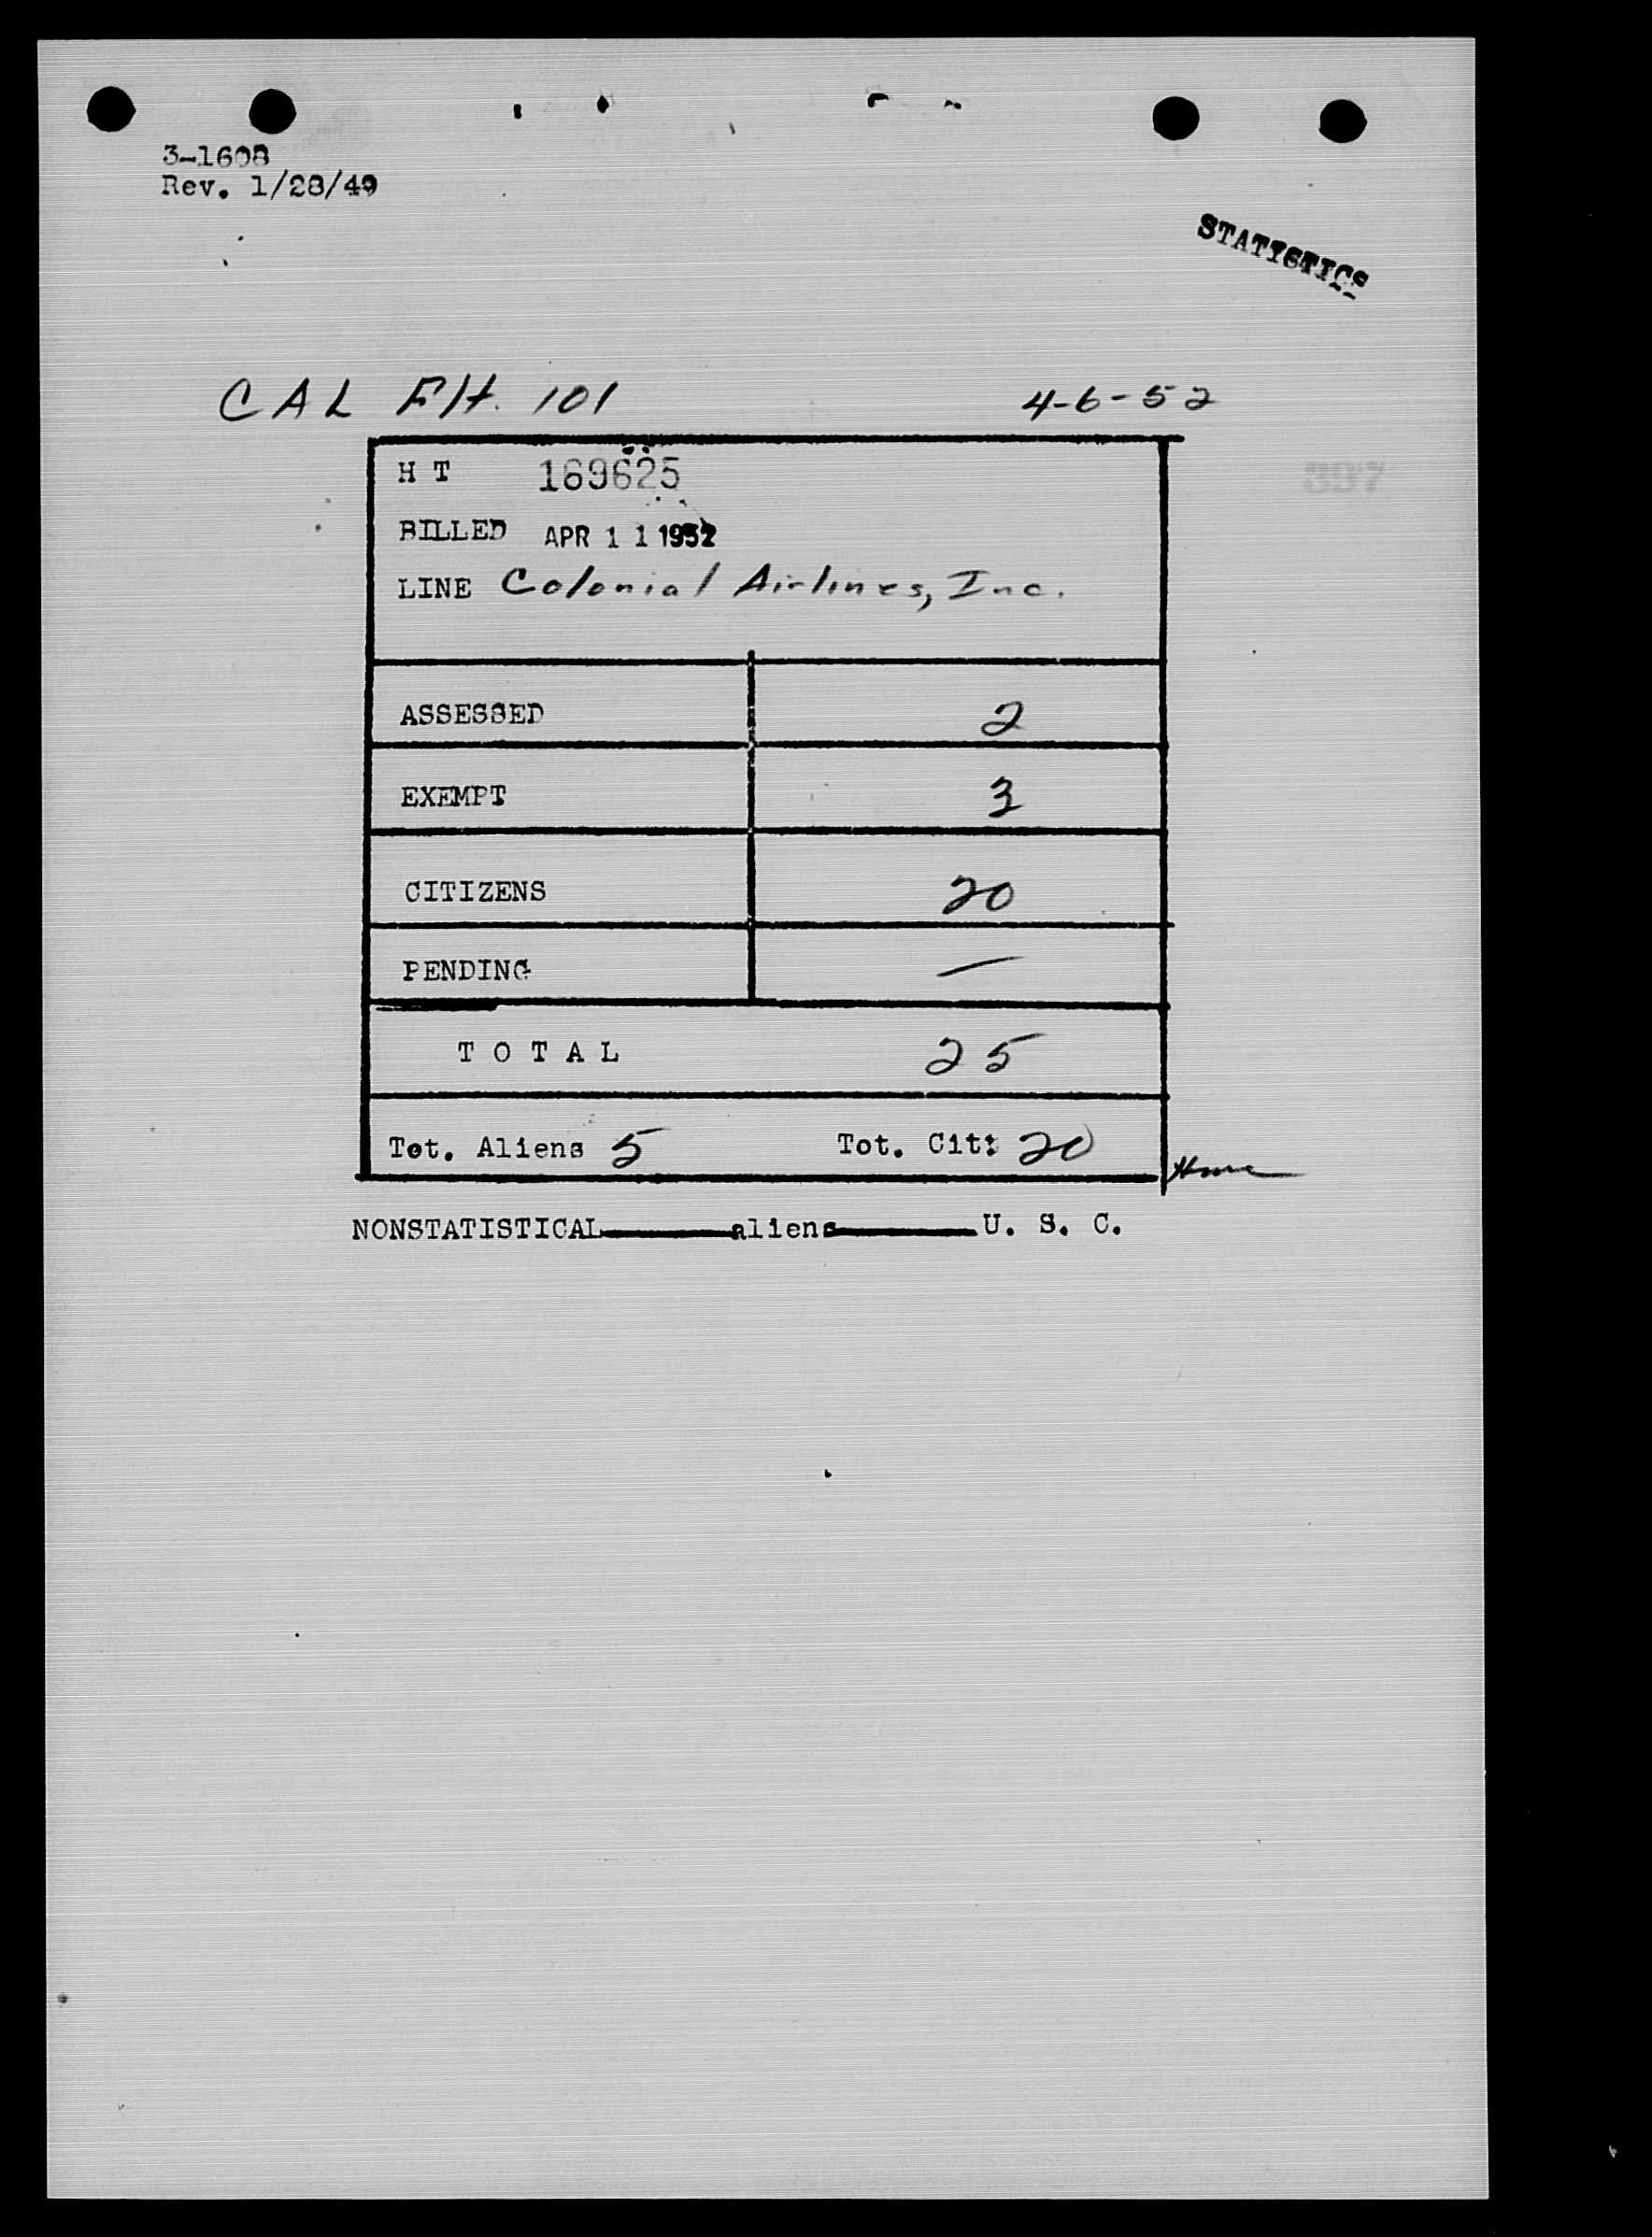 3-1608
Rev. 1/28/49
STATISTICS
CAL Flt. 101 4-6-52
H T 169625
397
BILLED APR 11 1952
LINE Colonial Airlines, Inc.
ASSESSED 2
EXEMPT 3
CITIZENS 20
PENDING —
TOTAL 25
Tot. Aliens 5 Tot. Cit: 20
NONSTATISTICAL aliens U. S. C.